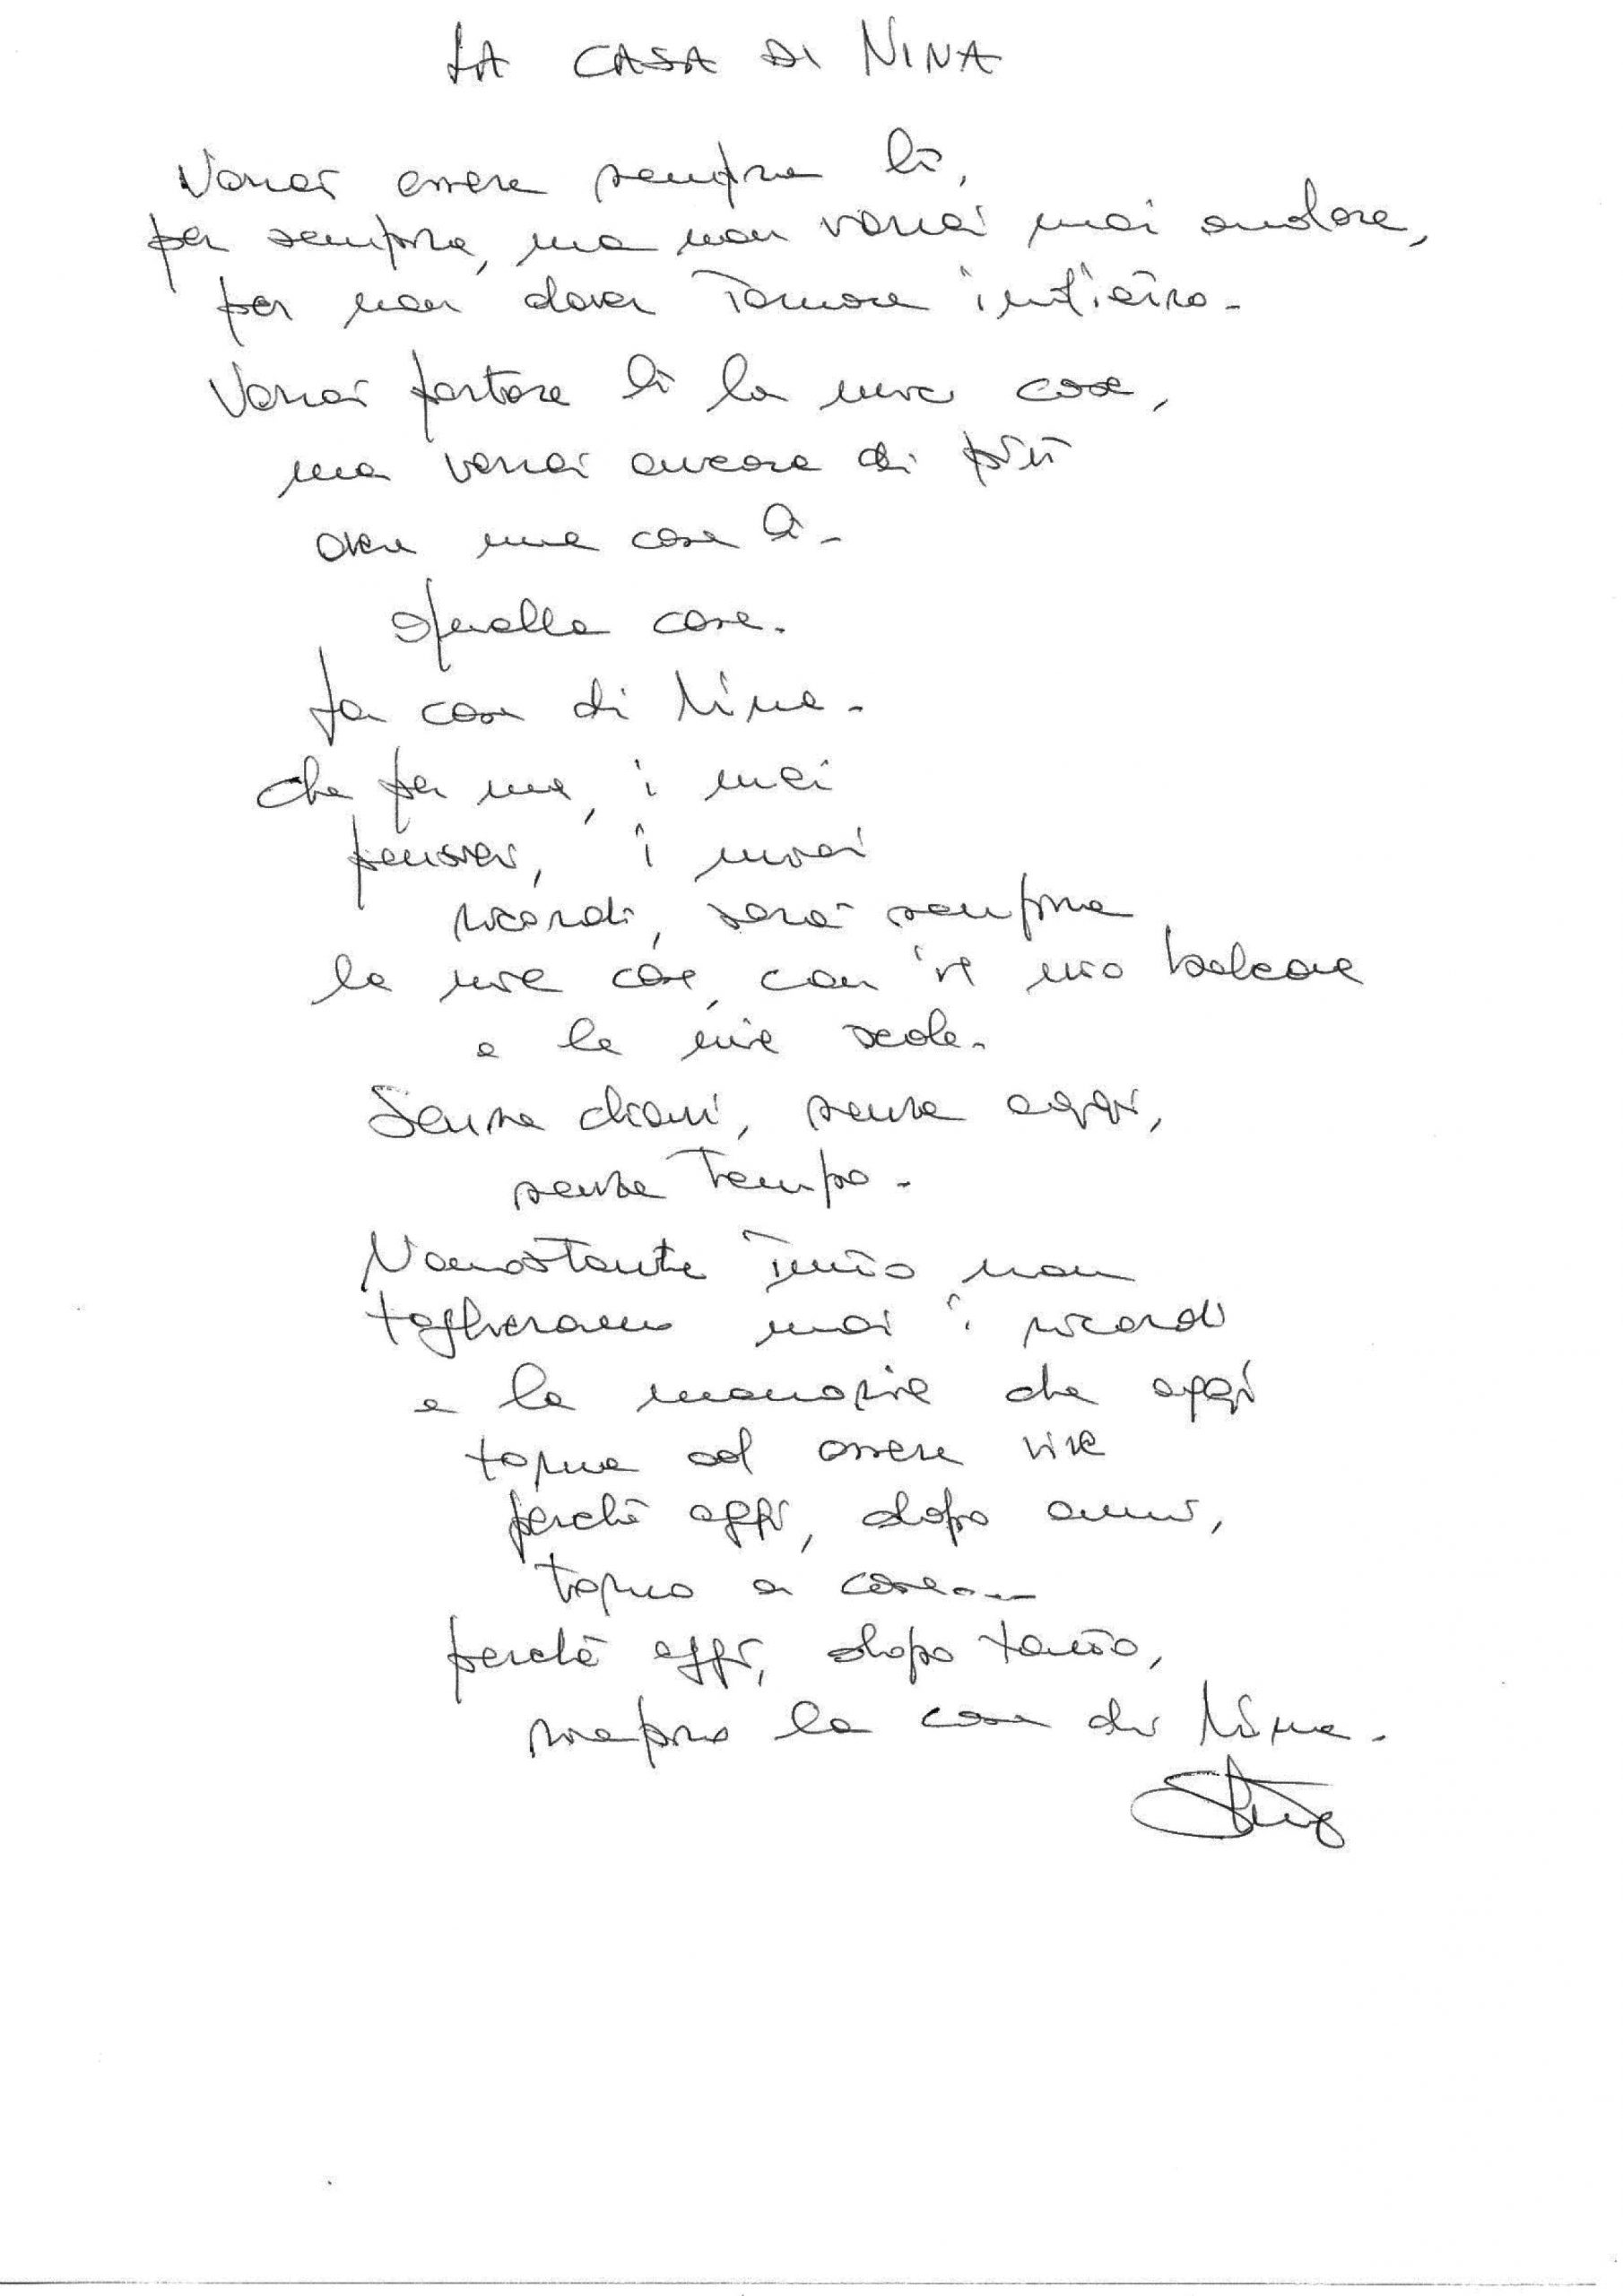 LA CASA DI NINA
Vorrei essere sempre lì,
per sempre, ma non vorrei mai andare,
per non dover tornare indietro.
Vorrei portare lì la mia casa,
ma vorrei ancora di più
avere una casa lì.
Quella casa.
La casa di Nina.
che per me, i miei
pensieri, i miei
ricordi, sarà sempre
la mia casa, con il mio balcone
e le mie scale.
Senza chiavi, senza oggi,
senza tempo.
Nonostante tutto non
toglieranno mai i ricordi
e la memoria che oggi
torna ad essere viva
perchè oggi, dopo anni,
torno a casa...
perchè oggi, dopo tanto,
riapro la casa di Nina.